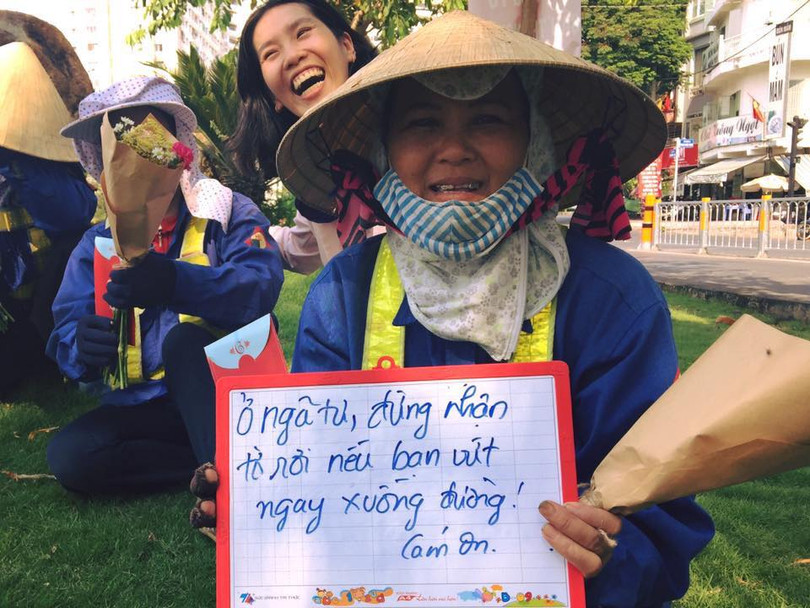 Ở ngã tư, đừng nhận
tờ rơi nếu bạn vứt
ngay xuống đường!
Cám ơn.
BÚN
MẮM